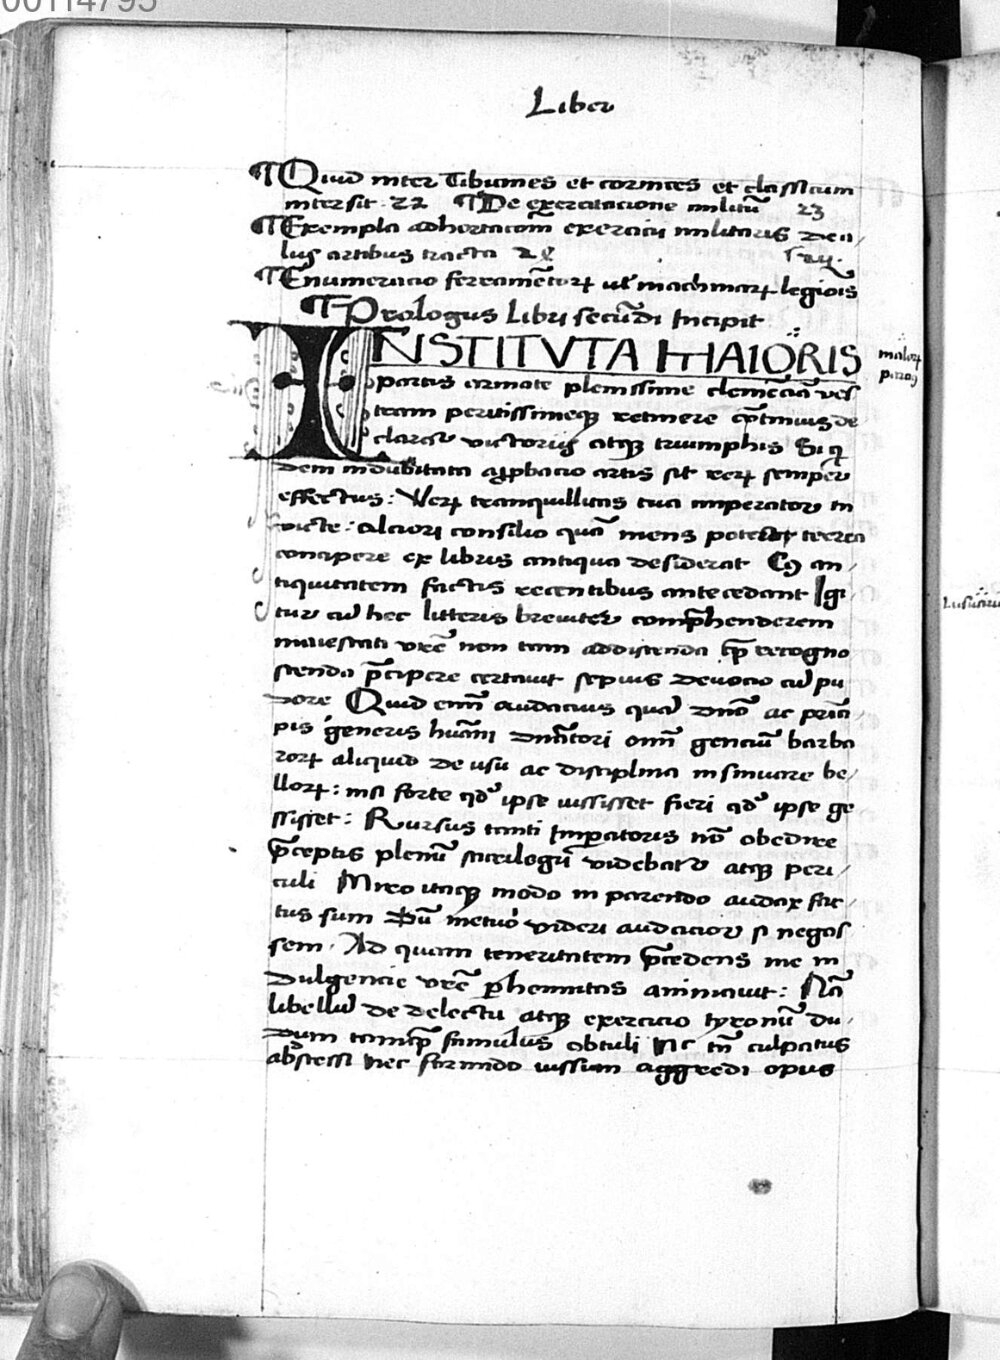 00114795
Liber
¶Quid inter Tibicines et cornices et classicum
intersit · 22 ¶De exercitacione militũ 23
¶Exempla adhortacom̃ exercicij militaris de a/
lijs artibus tracta 24
¶Enumeracio ferramẽtorꝝ ul̃ machinarꝝ legiõis
¶Prologus Libri secũdi Incipit
INSTITVTA MAIORIS
partis armate plenissime clemẽciã ves
tram peritissimeqȝ retinere cõtinuis de
claratr̃ victorijs atqȝ triumphis Siq̃
dem indubitata apꝓbacio artis sit rerꝝ semper
effectus : Verꝝ tranquillitas tua imperator in
victe : alciori consilio quã mens poterat terrea
concipere ex libris antiqua desiderat Cũ an /
tiquitatem factis recentibus antecedant Igi
tur cũ hec litteris breviter comp̃henderem
maiestati vrẽ non tam addiscenda q̃ recogno
scenda p̃cipere certavit sepius devocio cũ pu
dore Quid enĩ audacius quã dño ac prĩci /
pis generis hũani dñatori om̃ genciũ barba
rorꝝ aliquid de usu ac disciplina insinuare be/
llorꝝ : nisi forte qd̾ ipse iussisset fieri qd̾ ipse ge
ssisset : Rursus tanti Imꝑatoris nõ obedire
p̃ceptis plenũ sacrilogij videbatr̃ atqȝ peri /
culi Miro itaqȝ modo in parendo audax fac /
tus sum Dũ metuo videri audacior si negas
sem · Ad quam temeritatem p̃cedens me in
dulgencie vrẽ ꝑhennitas animavit : Nã
libellũ de delectu atqȝ exercicio tyronũ du /
dum tamq̃ famulus obtuli Nec tñ culpatus
abscessi Nec formido iussum aggredi opus
maiorꝝ